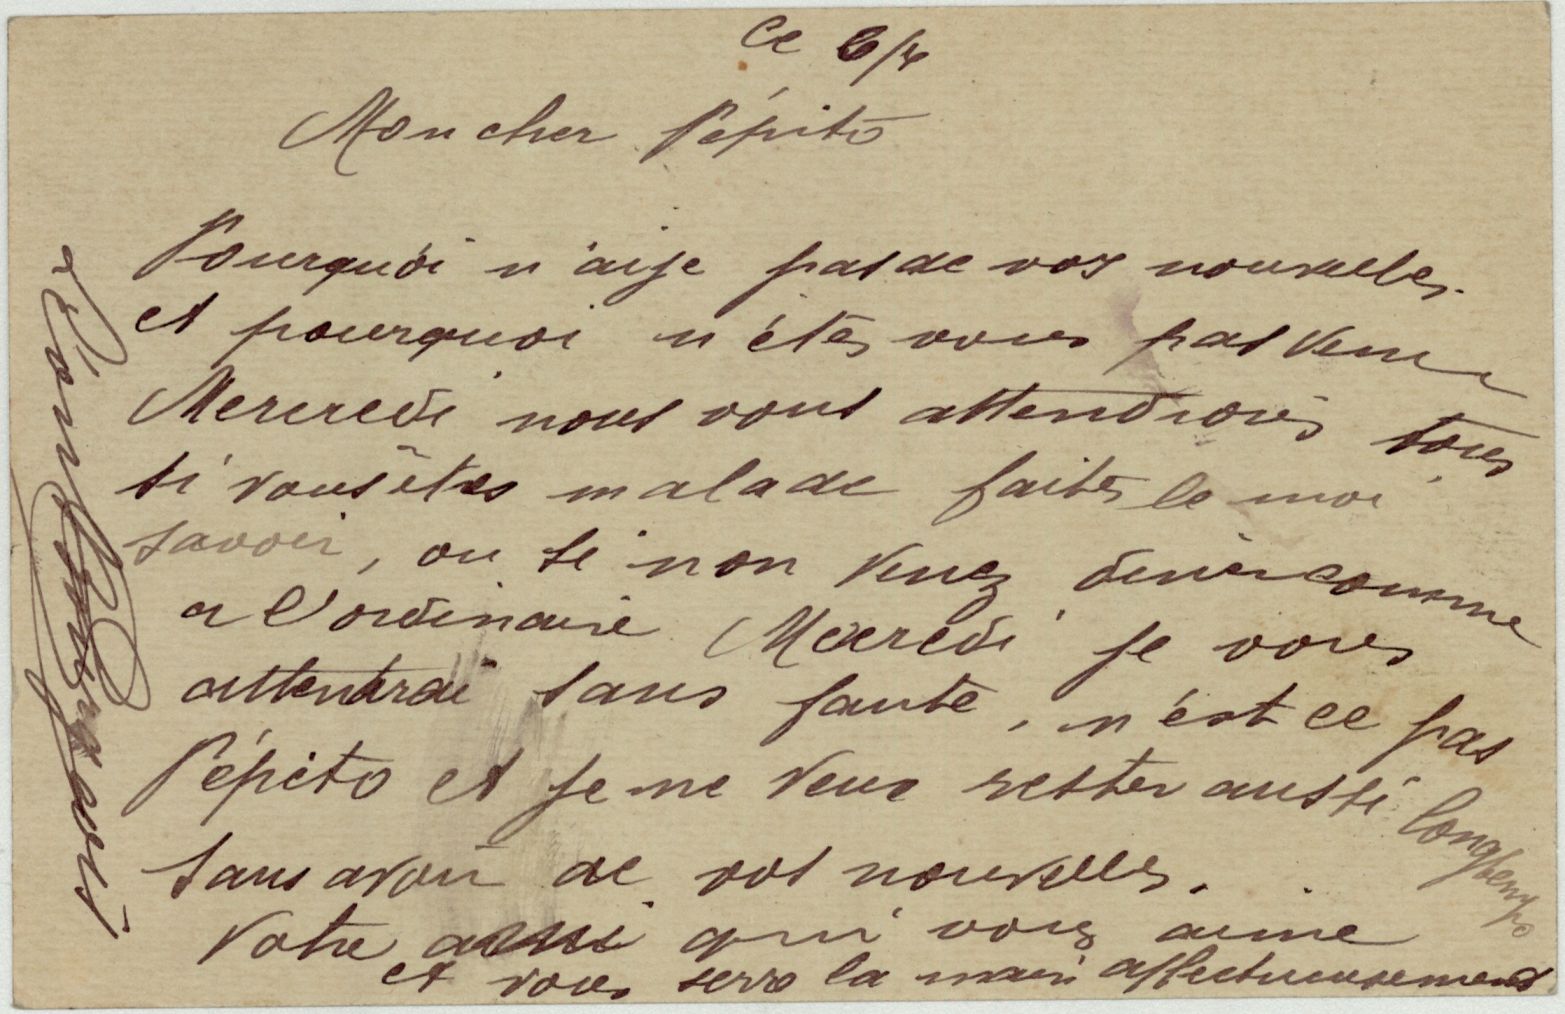 Ce 6/4
Mon cher Pépito
Pourquoi n'aije pas de vos nouvelles.
et pourquoi n'êtes vous pas venu
Mercredi nous vous attendions tous
si vous êtes malade faites le moi
savoir, ou si non venez diner comme
a l'ordinaire Mercredi je vous
attendrai sans faute, n'est ce pas
Pépito et je ne veux rester aussi longtemps
sans avoir de vos nouvelles.
Votre ami qui vous aime
et vous serre la main affectueusement